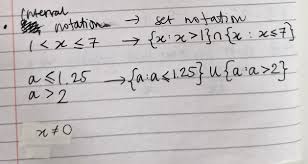 Interval
• notation → set notation
1 < x ≤ 7 → {x : x > 1} ∩ {x : x ≤ 7}
a ≤ 1.25 → {a : a ≤ 1.25} ∪ {a : a > 2}
a > 2
x ≠ 0